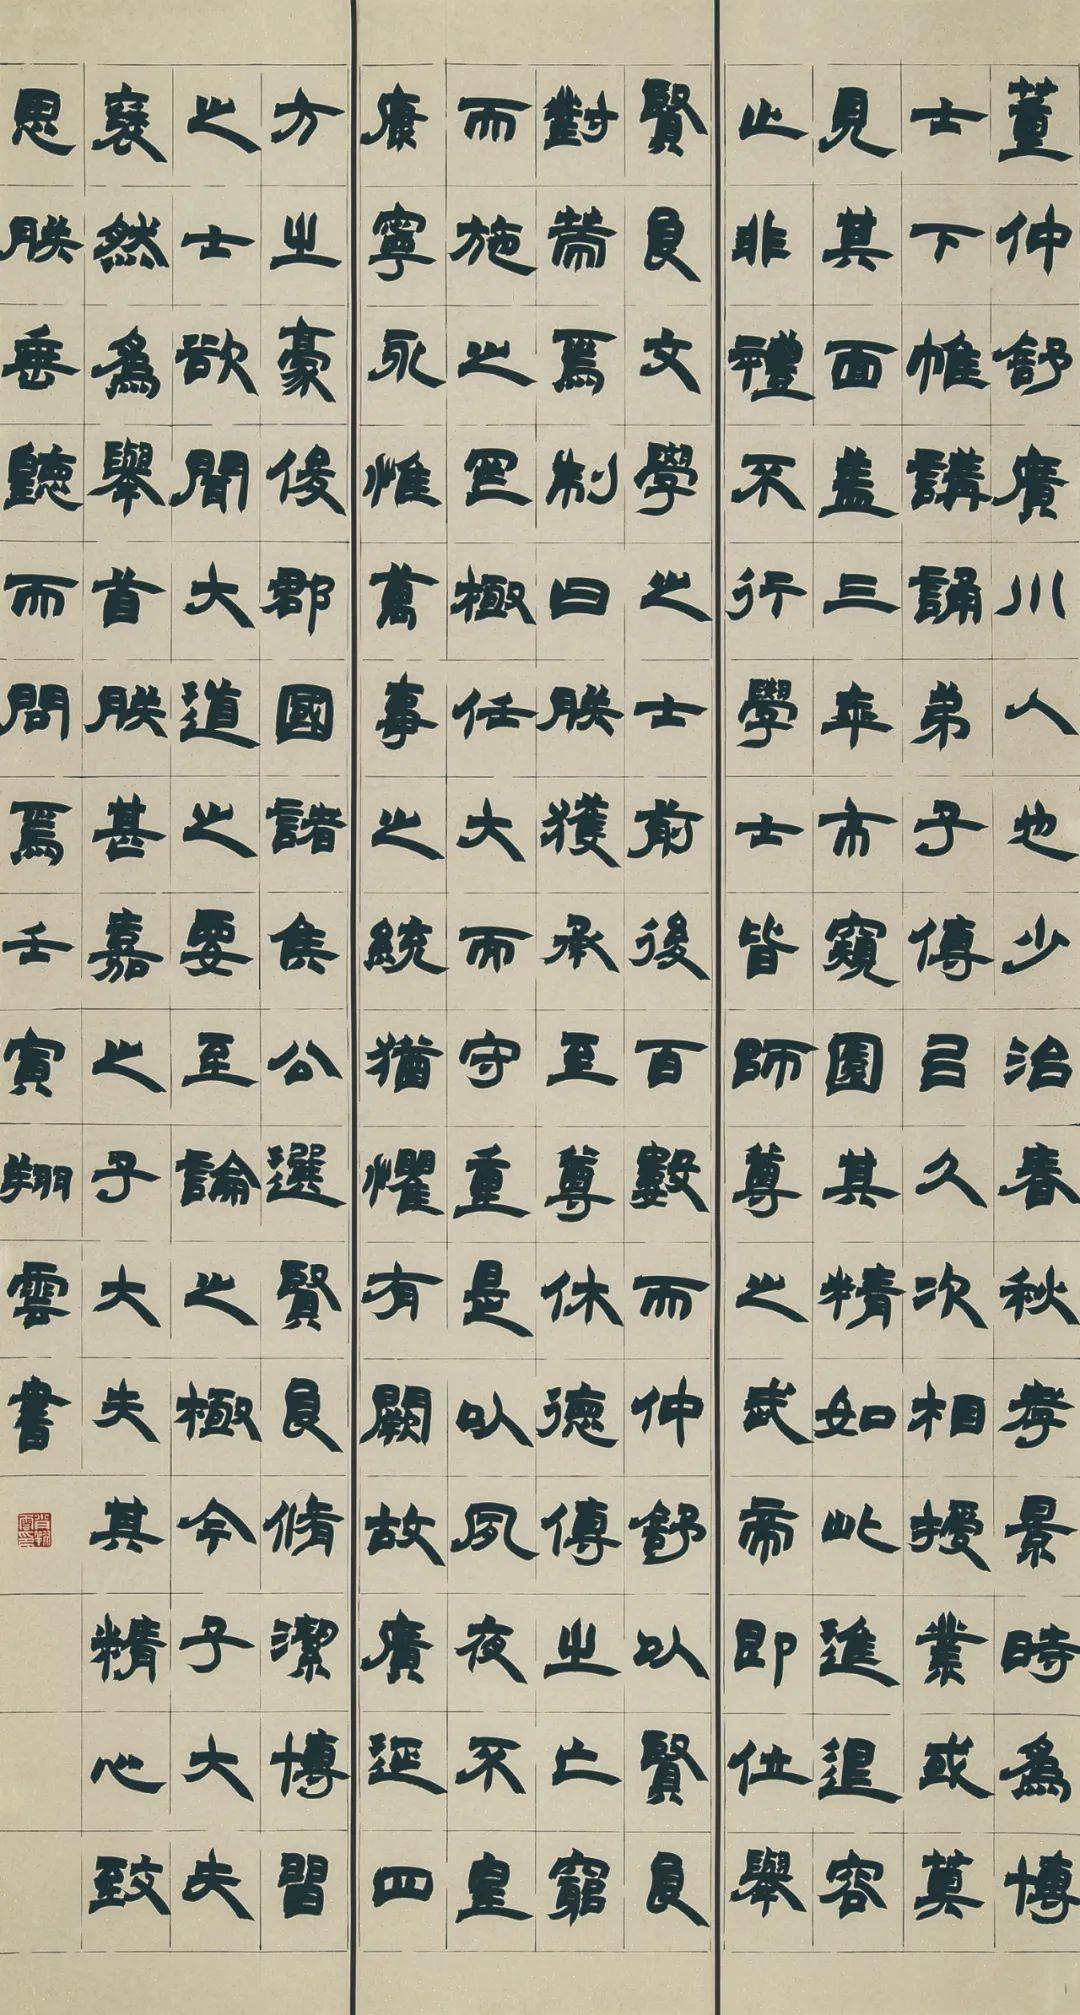 董仲舒廣川人也少治春秋孝景時為博
士下帷講誦弟子傳以久次相授業或莫
見其面蓋三年不窺園其精如此進退容
止非禮不行學士皆師尊之武帝即位舉
賢良文學之士前後百數而仲舒以賢良
對策焉制曰朕獲承至尊休德傳之亡窮
而施之罔極任大而守重是以夙夜不皇
康寧永惟萬事之統猶懼有闕故廣延四
方之豪俊郡國諸侯公選賢良修潔博習
之士欲聞大道之要至論之極今子大夫
褎然為舉首朕甚嘉之子大夫其精心致
思朕垂聽而問焉壬寅翔雲書